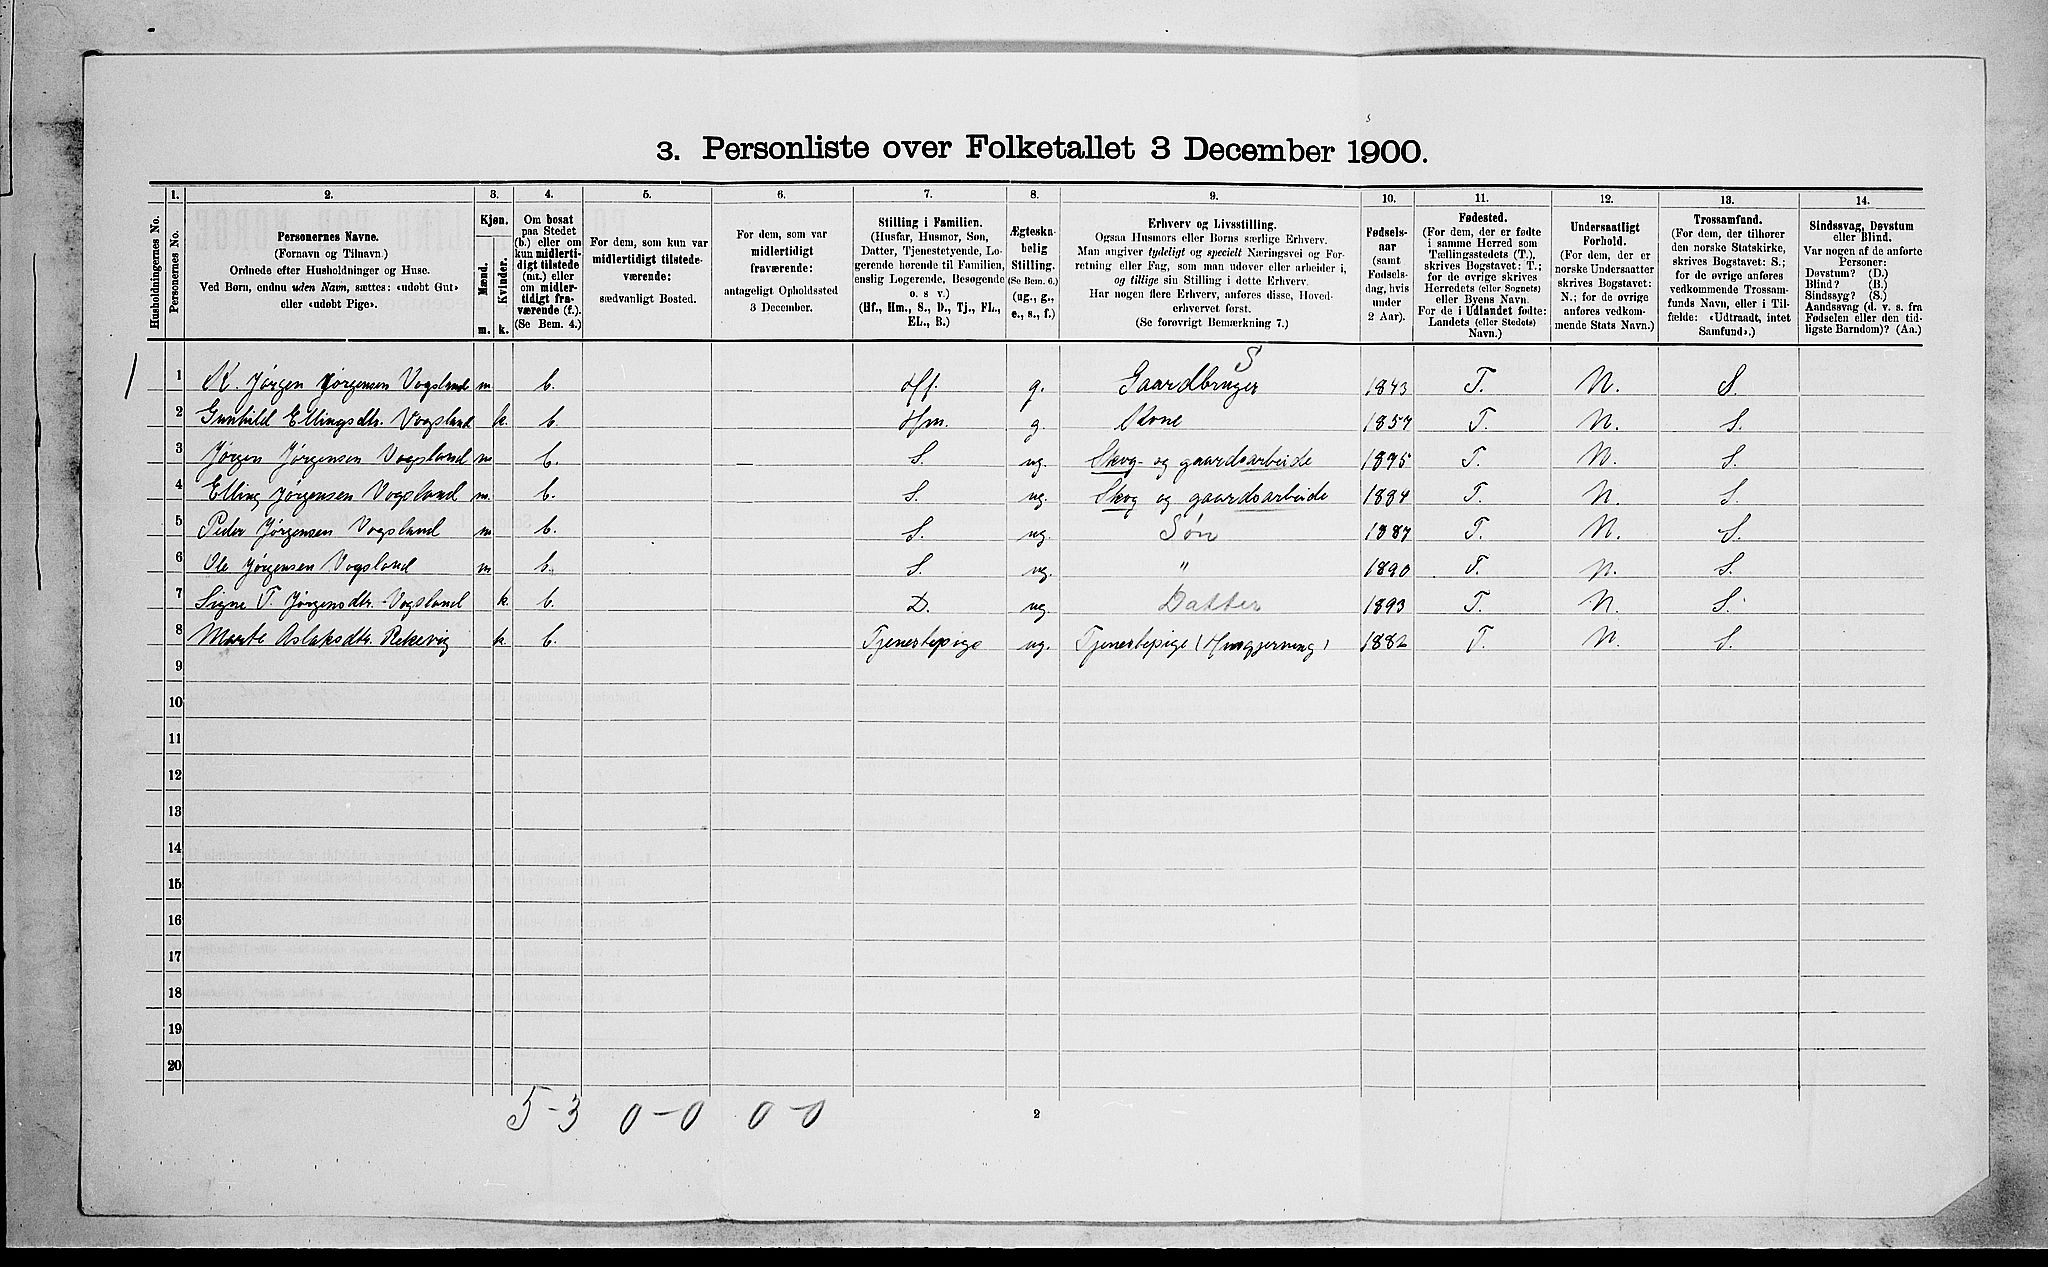 3. Personliste over Folketallet 3 December 1900.
1. 2. 3. 4. 5. 6. 7. 8. 9. 10. 11. 12. 13. 14.
Husholdningernes No.
Personernes No.
Personernes Navne.
(Fornavn og Tilnavn.)
Ordnede efter Husholdninger og Huse.
Ved Børn, endnu uden Navn, sættes: «udøbt Gut»
eller «udøbt Pige».
Kjøn.
Mænd.
Kvinder.
m. k.
Om bosat
paa Stedet
(b.) eller om
kun midlerti-
digt tilstede
(mt.) eller
om midler-
tidigt fra-
værende (f.).
(Se Bem. 4.)
For dem, som kun var
midlertidigt tilstede-
værende:
sædvanligt Bosted.
For dem, som var
midlertidigt
fraværende:
antageligt Opholdssted
3 December.
Stilling i Familien.
(Husfar, Husmor, Søn,
Datter, Tjenestetyende, Lo-
gerende hørende til Familien,
enslig Logerende, Besøgende
o. s v.)
(Hf., Hm., S., D., Tj., FL.,
EL., B.)
Ægteska-
belig
Stilling.
(Se Bem. 6.)
(ug., g.,
e., s., f.)
Erhverv og Livsstilling.
Ogsaa Husmors eller Børns særlige Erhverv.
Man angiver tydeligt og specielt Næringsvei og For-
retning eller Fag, som man udøver eller arbeider i,
og tillige sin Stilling i dette Erhverv.
Har nogen flere Erhverv, anføres disse, Hoved-
erhvervet først.
(Se forøvrigt Bemærkning 7.)
Fødsels-
aar
(samt
Fødsels-
dag, hvis
under
2 Aar).
Fødested.
(For dem, der er fødte
i samme Herred som
Tællingsstedets (T.),
skrives Bogstavet: T.;
for de øvrige skrives
Herredets (eller Sognets)
eller Byens Navn.
For de i Udlandet fødte:
Landets (eller Stedets)
Navn.)
Undersaatligt
Forhold.
(For dem, der er
norske Undersaatter
skrives Bogstavet:
N.; for de øvrige
anføres vedkom-
mende Stats Navn.)
Trossamfund.
(For dem, der tilhører
den norske Statskirke,
skrives Bogstavet: S.;
for de øvrige anføres
vedkommende Trossam-
funds Navn, eller i Til-
fælde: «Udtraadt, intet
Samfund».)
Sindssvag, Døvstum
eller Blind.
Var nogen af de anførte
Personer:
Døvstum? (D.)
Blind? (B.)
Sindssyg? (S.)
Aandssvag (d. v. s. fra
Fødselen eller den tid-
ligste Barndom)? (Aa.)
S
1 1 K. Jørgen Jørgensen Vogsland m b. Hf. g. Gaardbruger 1843 T. N. S.
2 Gunhild Ellingsdtr. Vogsland k. b. Hm. g. Kone 1857 T. N. S.
3 Jørgen Jørgensen Vogsland m b. S. ug. Skog- og gaardsarbeide 1875 T. N. S.
4 Elling Jørgensen Vogsland m. b. S. ug. Skog og gaardsarbeide 1884 T. N. S.
5 Peder Jørgensen Vogsland m b. S. ug. Søn 1887 T. N. S.
6 Ole Jørgensen Vogsland m b. S. ug. " 1890 T. N. S.
7 Signe T. Jørgensdtr. Vogsland k. b. D. ug. Datter 1893 T. N. S.
8 Marte Aslaksdtr. Rekevig k. b. Tjenestepige ug. Tjenestepige (Husgjerning) 1882 T. N. S.
9
10
11
12
13
14
15
16
17
18
19
20
5-3 0-0 0-0
2